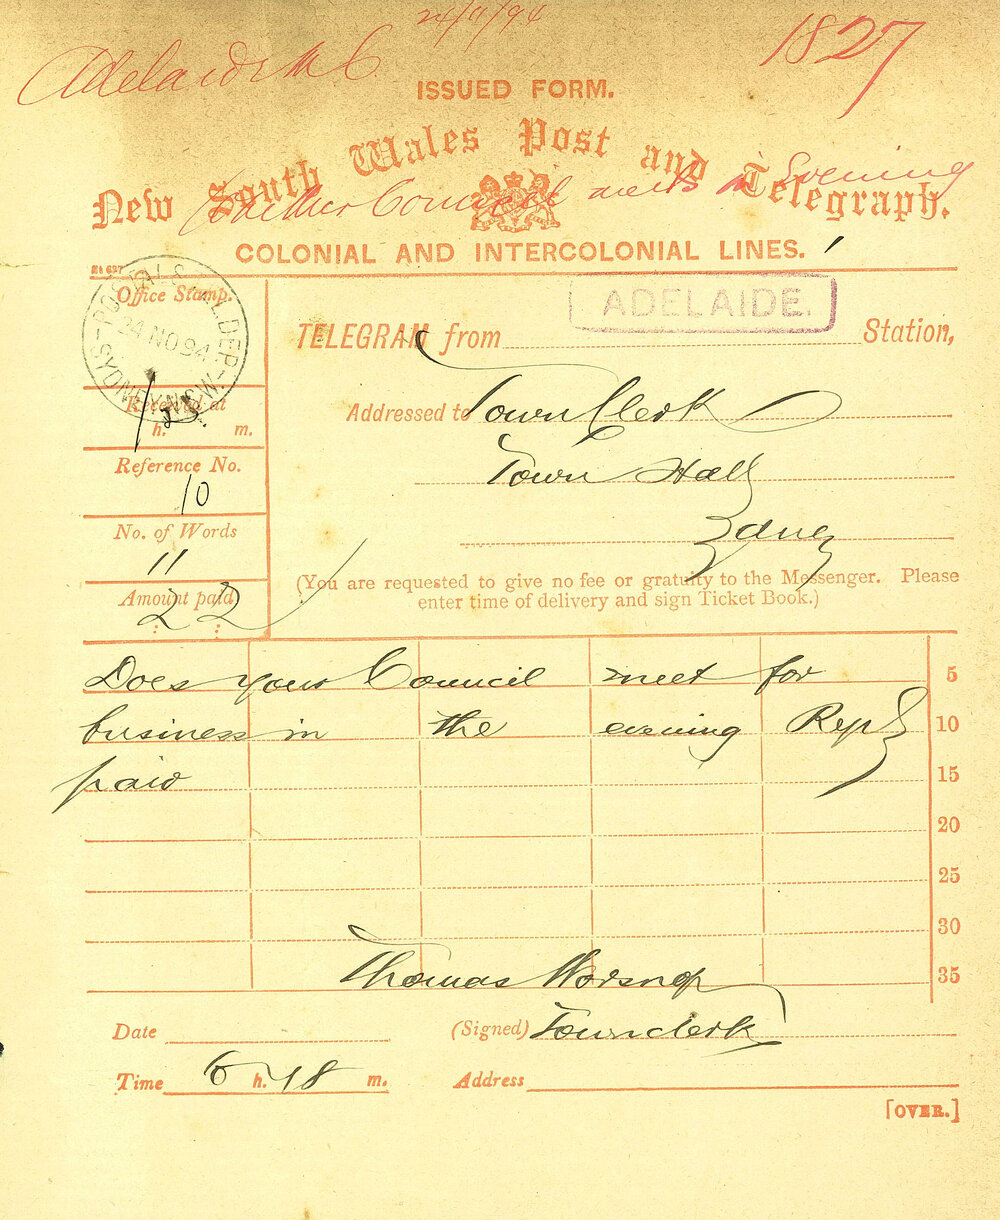 24/11/94
Adelaide M C
1827
ISSUED FORM.
New South Wales Post and Telegraph.
Whether Council meets in Evening
COLONIAL AND INTERCOLONIAL LINES.
Office Stamp.
24 NO 94
SYDNEY N.S.W.
ADELAIDE.
TELEGRAM from Station,
Received at
h. m.
Addressed to Town Clerk
Town Hall
Sydney
Reference No.
10
No. of Words
11
Amount paid
2 : 2 :
(You are requested to give no fee or gratuity to the Messenger. Please
enter time of delivery and sign Ticket Book.)
Does your Council meet for 5
business in the evening Reply 10
paid 15
20
25
30
Thomas Worsnop 35
Date (Signed) Town clerk
Time 6 h. 18 m. Address
[OVER.]